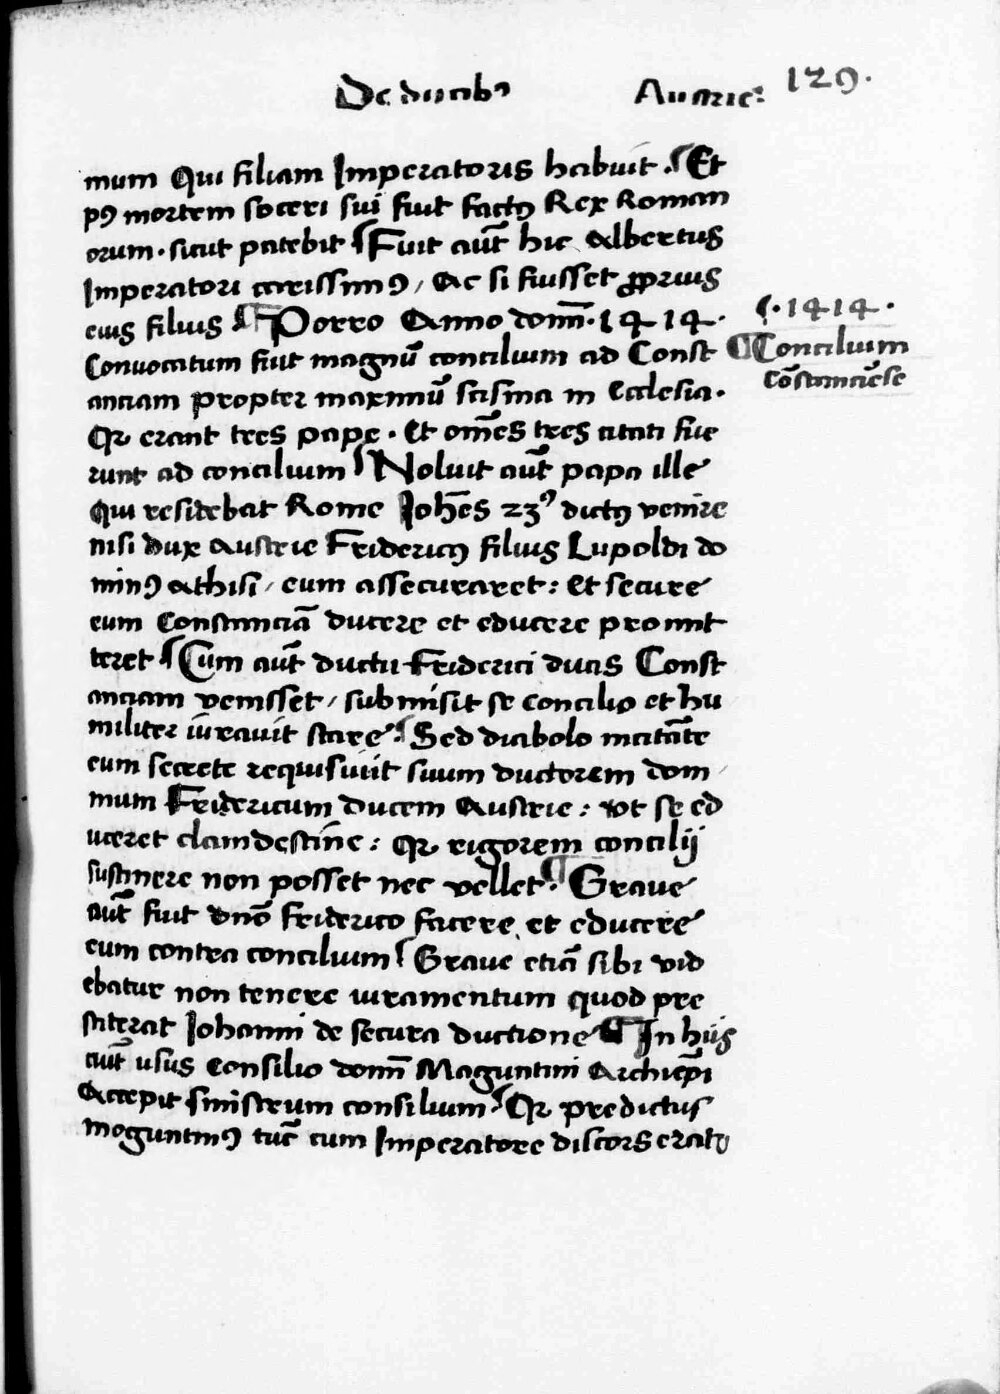 De ducibꝰ Austrie: 129.
mum Qui filiam Imperatoris habuit . Et
pꝰ mortem soceri sui fuit factꝰ Rex Roman
orum . sicut patebit Fuit aūt hic Albertus
Imperatori carissimꝰ / Ac si fuisset ꝓprius
eius filius ¶ Porro Anno domī . 1414 .
Convocatum fuit magnū concilium ad Const
anciam propter maximū scisma in Ecclesia .
Qꝛ erant tres pape . Et om̄es tres citati fue
runt ad concilium Noluit aūt papa ille
Qui residebat Rome Joh̄es 23ꝰ dictꝰ venire
nisi dux Austrie Fridericꝰ filius Lupoldi do
minꝰ athisi / eum assecuraret : Et secure
eum Constanciā ducere et educere promit
teret Cum aūt ductu Friderici ducis Const
anciam venisset / submisit se concilio et hu
militer iuravit stare . Sed diabolo incitāte
eum secrete requisiuit suum ductorem dom
inum Fridericum ducem Austrie : vt se ed
uceret clamdestine : Qꝛ rigorem concilij
sustinere non posset nec vellet . ¶ Graue
aūt fuit dn̄o friderico facere et educere
eum contra concilium Graue etiā sibi vid
ebatur non tenere iuramentum quod pre
stiterat Johanni de secura ductione ¶ In hijs
aūt usus consilio domī Maguntini Archiep̄i
Accepit sinistrum consilium . Qꝛ predictus
moguntinꝰ tūc cum Imperatore discors erat
. 1414 .
¶ Concilium
cōstanciēse